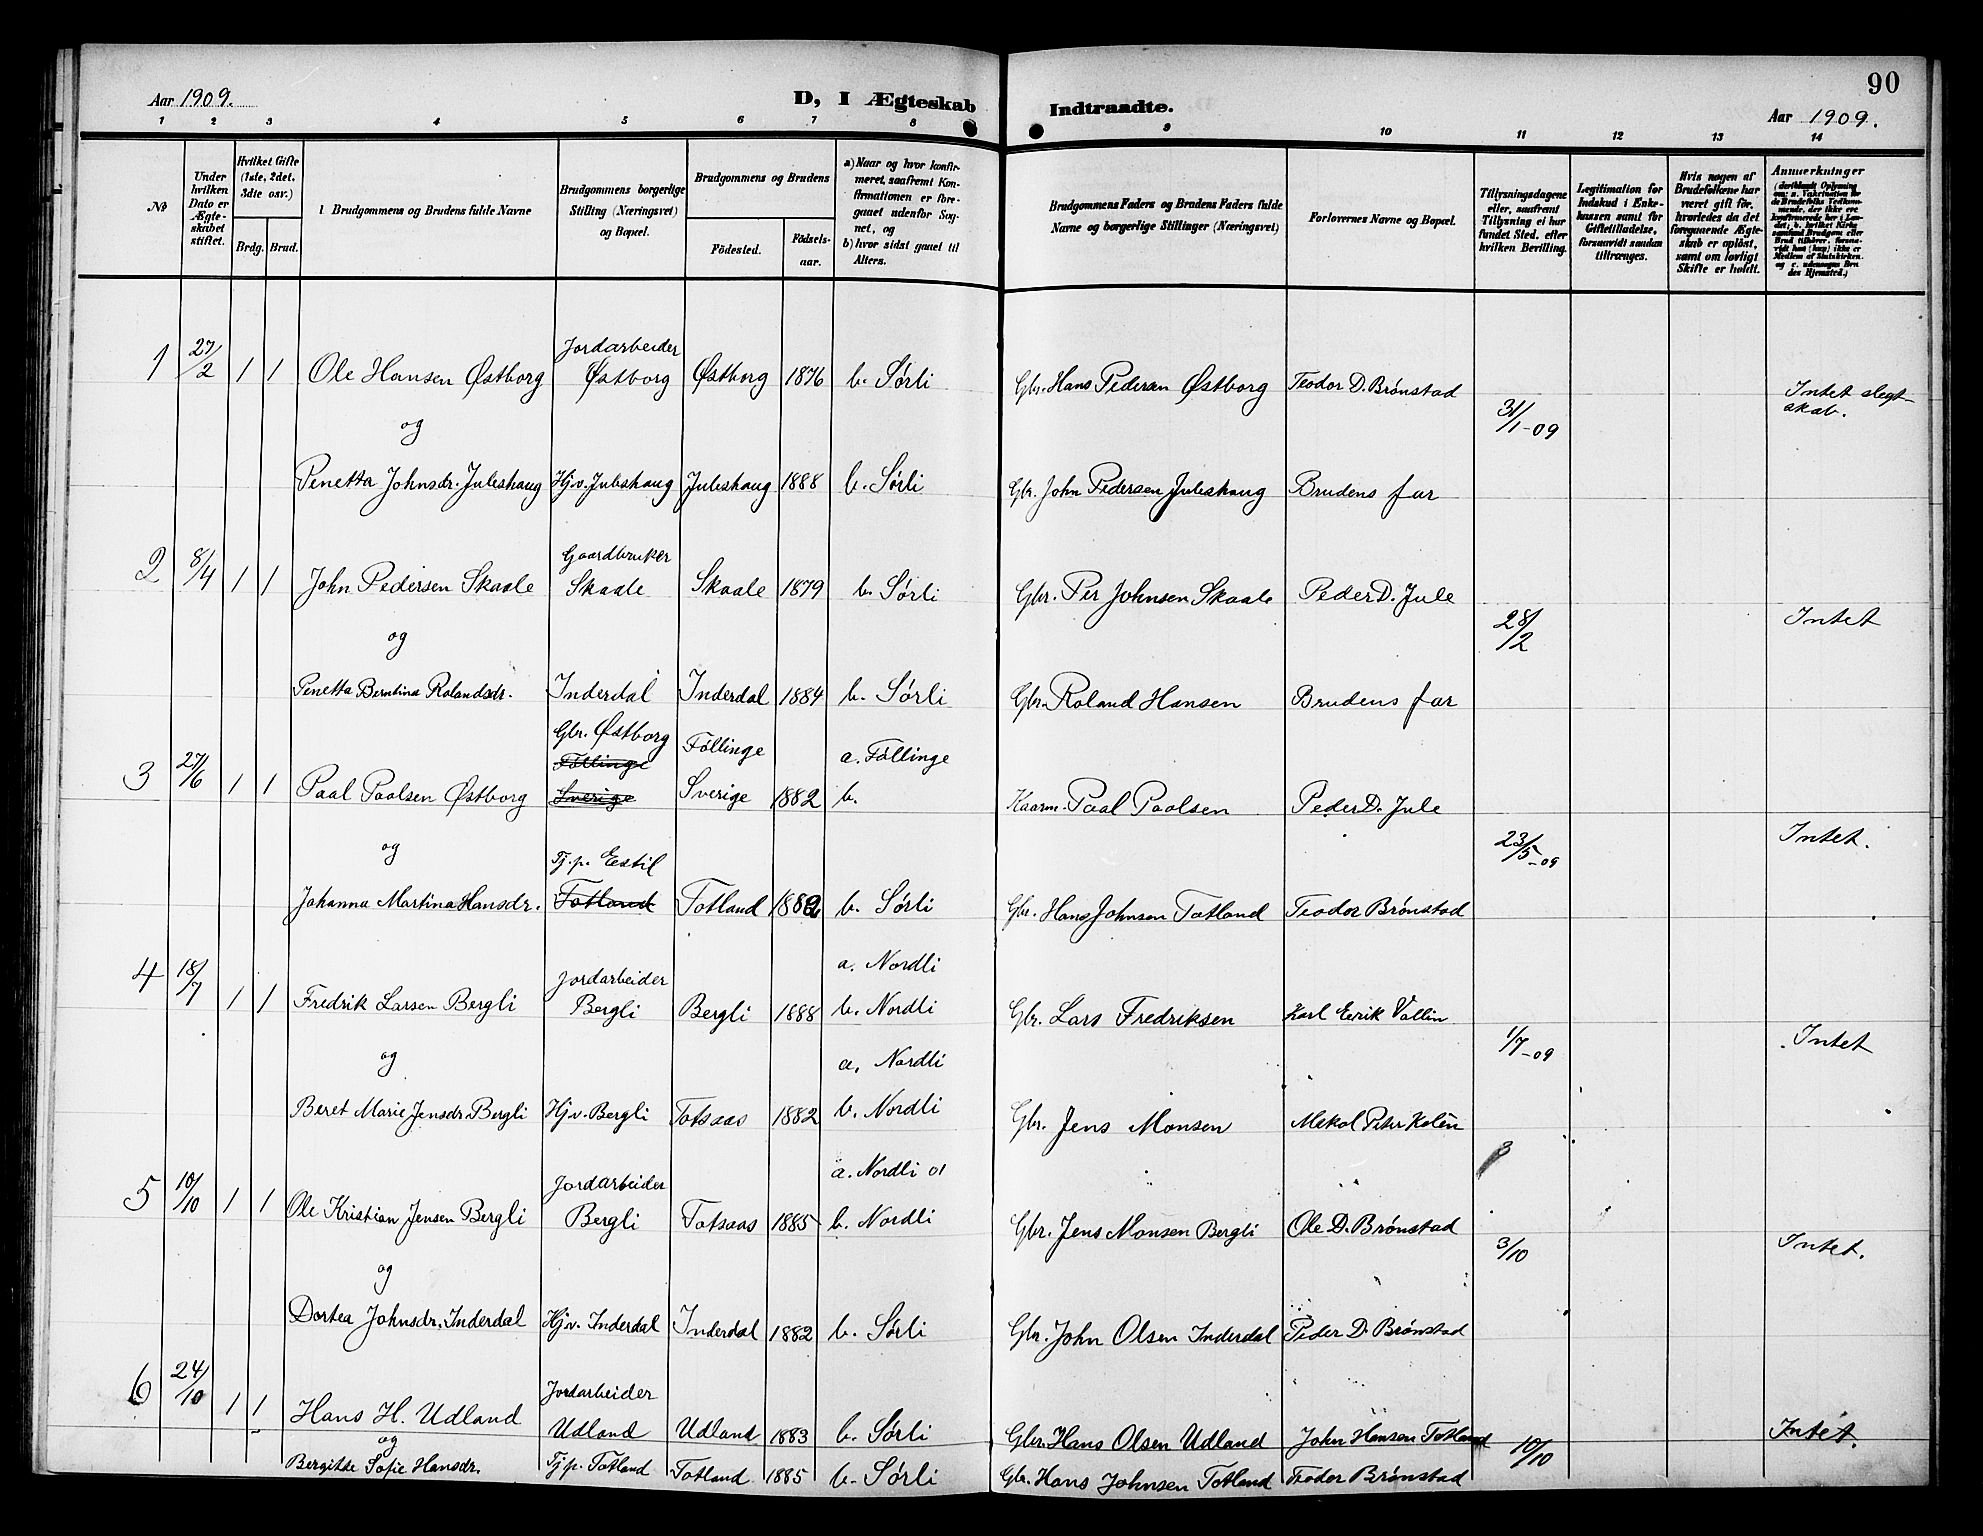 90
Aar 1909.
D, I Ægteskab Indtraadte.
Aar 1909.
1 2 3 4 5 6 7 8 9 10 11 12 13 14
No
Under hvilken Dato er Ægteskabet stiftet.
Hvilket Gifte (1ste, 2det, 3die osv.)
Brdg. Brud.
Brudgommens og Brudens fulde Navne
Brudgommens borgerlige Stilling (Næringsvei) og Bopæl.
Brudgommens og Brudens
Födested. Födselsaar.
a) Naar og hvor konfirmeret, saafremt Konfirmationen er foregaaet udenfor Sognet, og
b) hvor sidst gaaet til Alters.
Brudgommens Faders og Brudens Faders fulde Navne og borgerlige Stillinger (Næringsvei)
Forlovernes Navne og Bopæl.
Tillysningsdagene eller, saafremt Tillysning ei har fundet Sted, efter hvilken Bevilling.
Legitimation for Indskud i Enkekassen samt for Giftetilladelse, forsaavidt saadan tiltrænges.
Hvis nogen af Brudefolkene har været gift før, hvorledes da det foregaaende Ægteskab er oplöst, samt om lovligt Skifte er holdt.
Anmerkninger
1 27/2 1 1 Ole Hansen Østborg Jordarbeider Østborg Østborg 1876 b. Sørli Gbr. Hans Pedersen Østborg Teodor D. Brønstad
31/1-09 Intet slegtskab.
og
Penetta Johnsdr. Juleshaug Hj.v. Juleshaug Juleshaug 1888 b. Sørli Gbr. John Pedersen Juleshaug Brudens far
2 8/4 1 1 John Pedersen Skaale Gaardbruker Skaale Skaale 1879 b. Sørli Gbr. Per Johnsen Skaale Peder D. Jule
28/2 Intet
og
Penetta Berntina Rolandsdr. Inderdal Inderdal 1884 b. Sørli Gbr. Roland Hansen Brudens far
3 27/6 1 1 Paal Paalsen Østborg Gbr. Østborg Föllinge Sverige Föllinge Sverige 1882 a. Föllinge b. Kaarm. Paal Paalsen Peder D. Jule
23/5-09 Intet.
og
Johanna Martina Hansdr. Tj.p. Estil Totland Totland 1882 b. Sørli Gbr. Hans Johnsen Totland Teodor Brønstad
4 18/7 1 1 Fredrik Larsen Bergli Jordarbeider Bergli Bergli 1888 a. Nordli b. Nordli Gbr. Lars Fredriksen Karl Eirik Vallin
1/7-09 Intet
og
Beret Marie Jensdr. Bergli Hj.v. Bergli Totsaas 1882 a. Nordli b. Nordli Gbr. Jens Monsen Mekal Peter Kalèn
5 10/10 1 1 Ole Kristian Jensen Bergli Jordarbeider Bergli Totsaas 1885 a. Nordli 01 b. Nordli Gbr. Jens Monsen Bergli Ole D. Brønstad
3/10 Intet.
og
Dortea Johnsdr. Inderdal Hj.v. Inderdal Inderdal 1882 b. Sørli Gbr. John Olsen Inderdal Peder D. Brønstad
6 24/10 1 1 Hans H. Udland Jordarbeider Udland Udland 1883 b. Sørli Gbr. Hans Olsen Udland John Hansen Totland
10/10 Intet.
og
Bergitte Sofie Hansdr. Tj.p. Totland Totland 1885 b. Sørli Gbr. Hans Johnsen Totland Teodor Brønstad